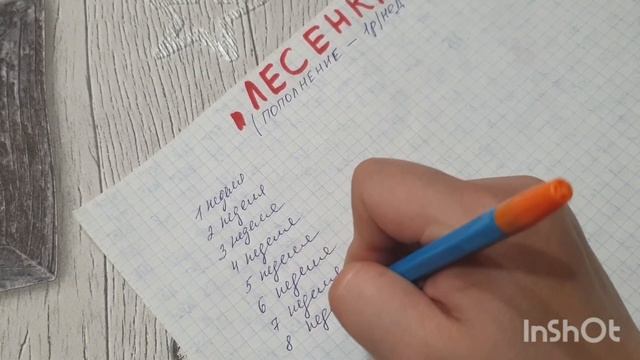 ЛЕСЕНК
(ПОПОЛНЕНИЕ - 1р/нед
1 неделя
2 неделя
3 неделя
4 неделя
5 неделя
6 неделя
7 неделя
8 нед
InShOt